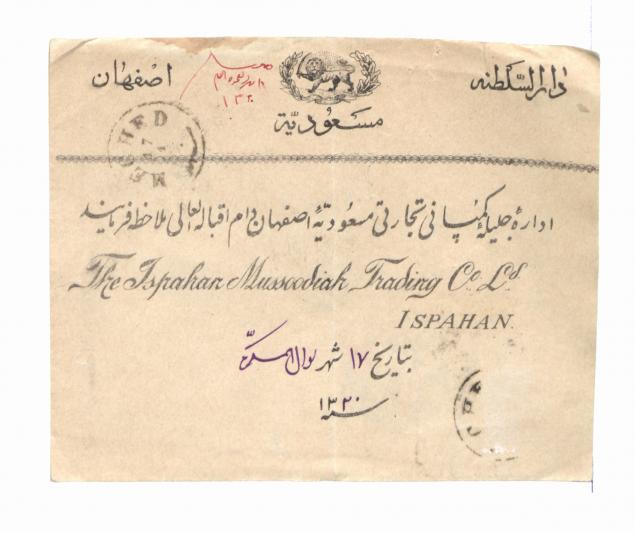 دارالسلطنه اصفهان
مسعودیّة
MECHED
اداره جلیلهٔ کمپانی تجارتی مسعودیّهٔ اصفهان دام اقباله العالی ملاحظه فرمایند
The Ispahan Mussoodiah Trading Co. Ld.
ISPAHAN.
بتاریخ ۱۷ شهر شوال المکرّم
سنه ۱۳۲۰